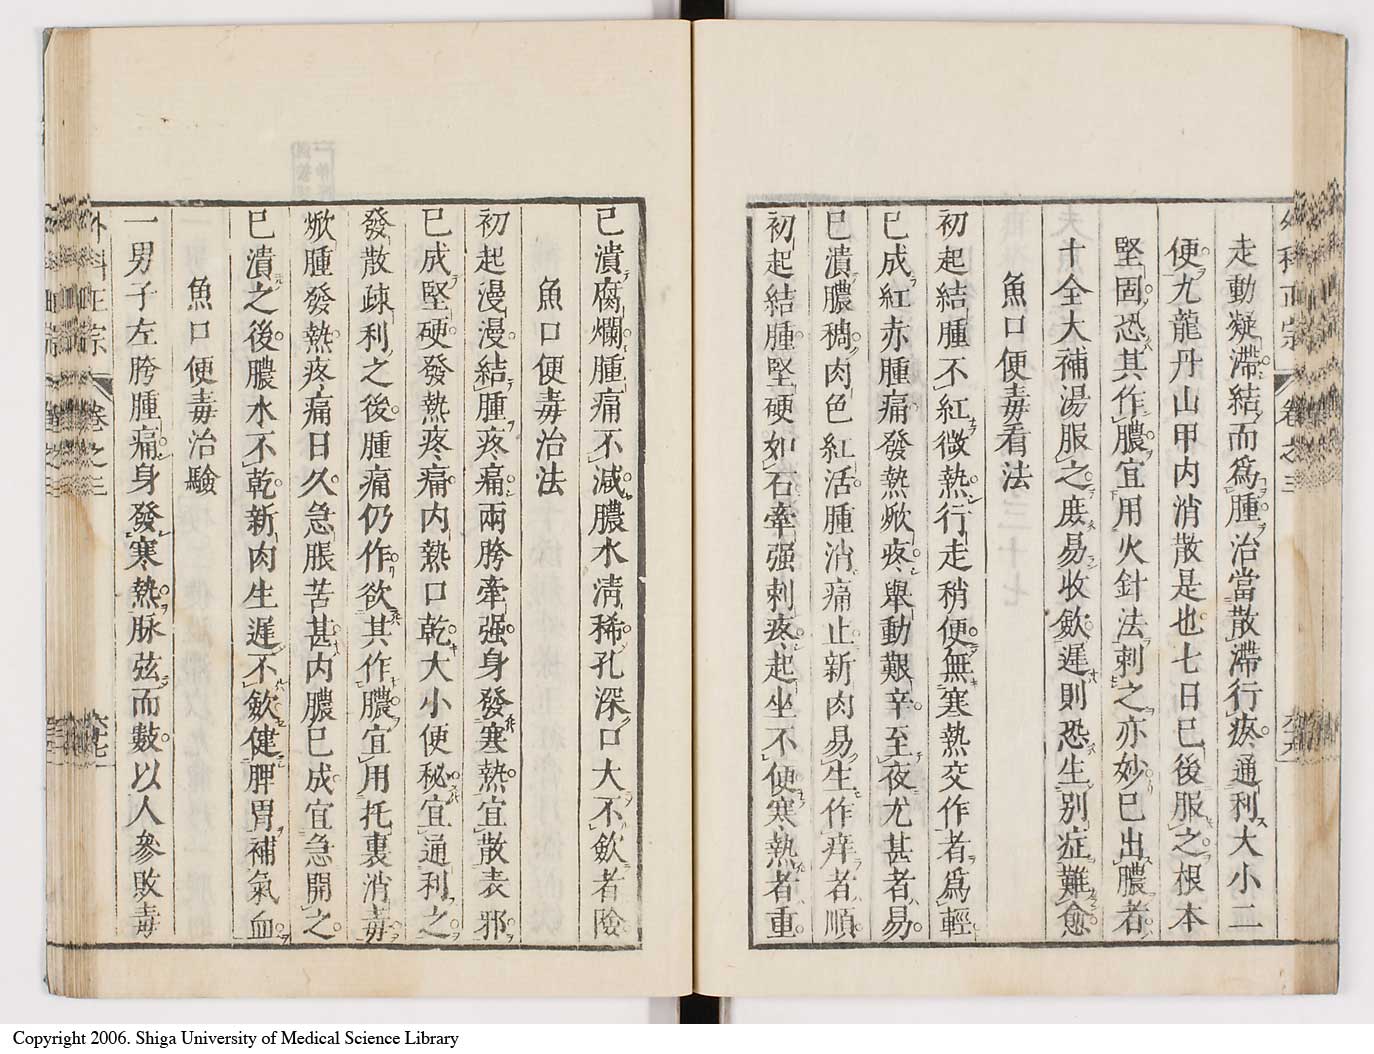 外科正宗 卷之三
走動凝滯結而爲腫治當散滯行疼通利大小二
便九龍丹山甲内消散是也七日已後服之根本
堅固恐其作膿宜用火針法刺之亦妙已出膿者
十全大補湯服之庻易收斂遲則恐生別症難愈
魚口便毒看法
初起結腫不紅微熱行走稍便無寒熱交作者爲輕
已成紅赤腫痛發熱焮疼舉動艱辛至夜尤甚者易
已潰膿稠肉色紅活腫消痛止新肉易生作痒者順
初起結腫堅硬如石牽强刺疼起坐不便寒熱者重
已潰腐爛腫痛不減膿水淸稀孔深口大不斂者險
魚口便毒治法
初起漫漫結腫疼痛兩胯牽强身發寒熱宜散表邪
已成堅硬發熱疼痛内熱口乾大小便秘宜通利之
發散疎利之後腫痛仍作欲其作膿宜用托裏消毒
焮腫發熱疼痛日久急脹苦甚内膿已成宜急開之
已潰之後膿水不乾新肉生遲不斂健脾胃補氣血
魚口便毒治驗
一男子左胯腫痛身發寒熱脉弦而數以人參敗毒
外科正宗 卷之三
Copyright 2006. Shiga University of Medical Science Library